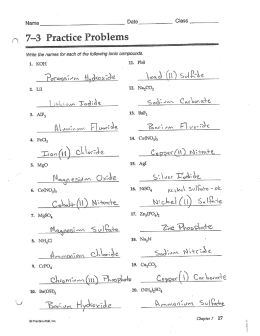 Name Date Class
7–3 Practice Problems
Write the names for each of the following ionic compounds.
1. KOH
Potassium Hydroxide
2. LiI
Lithium Iodide
3. AlF₃
Aluminum Fluoride
4. FeCl₂
Iron(II) Chloride
5. MgO
Magnesium Oxide
6. Co(NO₃)₂
Cobalt(II) Nitrate
7. MgSO₄
Magnesium Sulfate
8. NH₄Cl
Ammonium Chloride
9. CrPO₄
Chromium(III) Phosphate
10. Ba(OH)₂
Barium Hydroxide
11. PbS
lead (II) Sulfide
12. Na₂CO₃
Sodium Carbonate
13. BaF₂
Barium Fluoride
14. Cu(NO₃)₂
Copper(II) Nitrate
15. AgI
Silver Iodide
16. NiSO₄ Nickel Sulfate - ok
Nickel (II) Sulfate
17. Zn₃(PO₄)₂
Zinc Phosphate
18. Na₃N
Sodium Nitride
19. Cu₂CO₃
Copper(I) Carbonate
20. (NH₄)₂SO₄
Ammonium Sulfate
Chapter 7 27